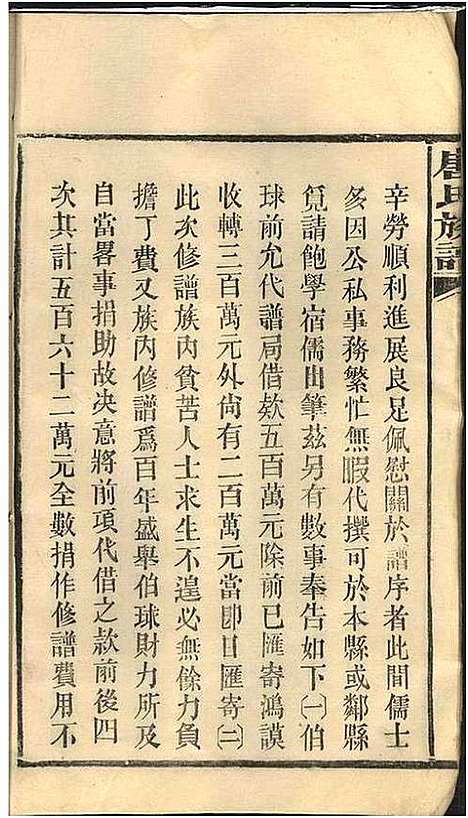 唐氏族譜
辛勞順利進展良足佩慰關於譜序者此間儒士
多因公私事務繁忙無暇代撰可於本縣或鄰縣
覓請飽學宿儒出筆茲另有數事奉告如下㈠伯
球前允代譜局借欵五百萬元除前已匯寄鴻謨
收轉三百萬元外尙有二百萬元當即日匯寄㈡
此次修譜族內貧苦人士求生不遑必無餘力負
擔丁費又族內修譜爲百年盛舉伯球財力所及
自當畧事捐助故决意將前項代借之款前後四
次其計五百六十二萬元全數捐作修譜費用不